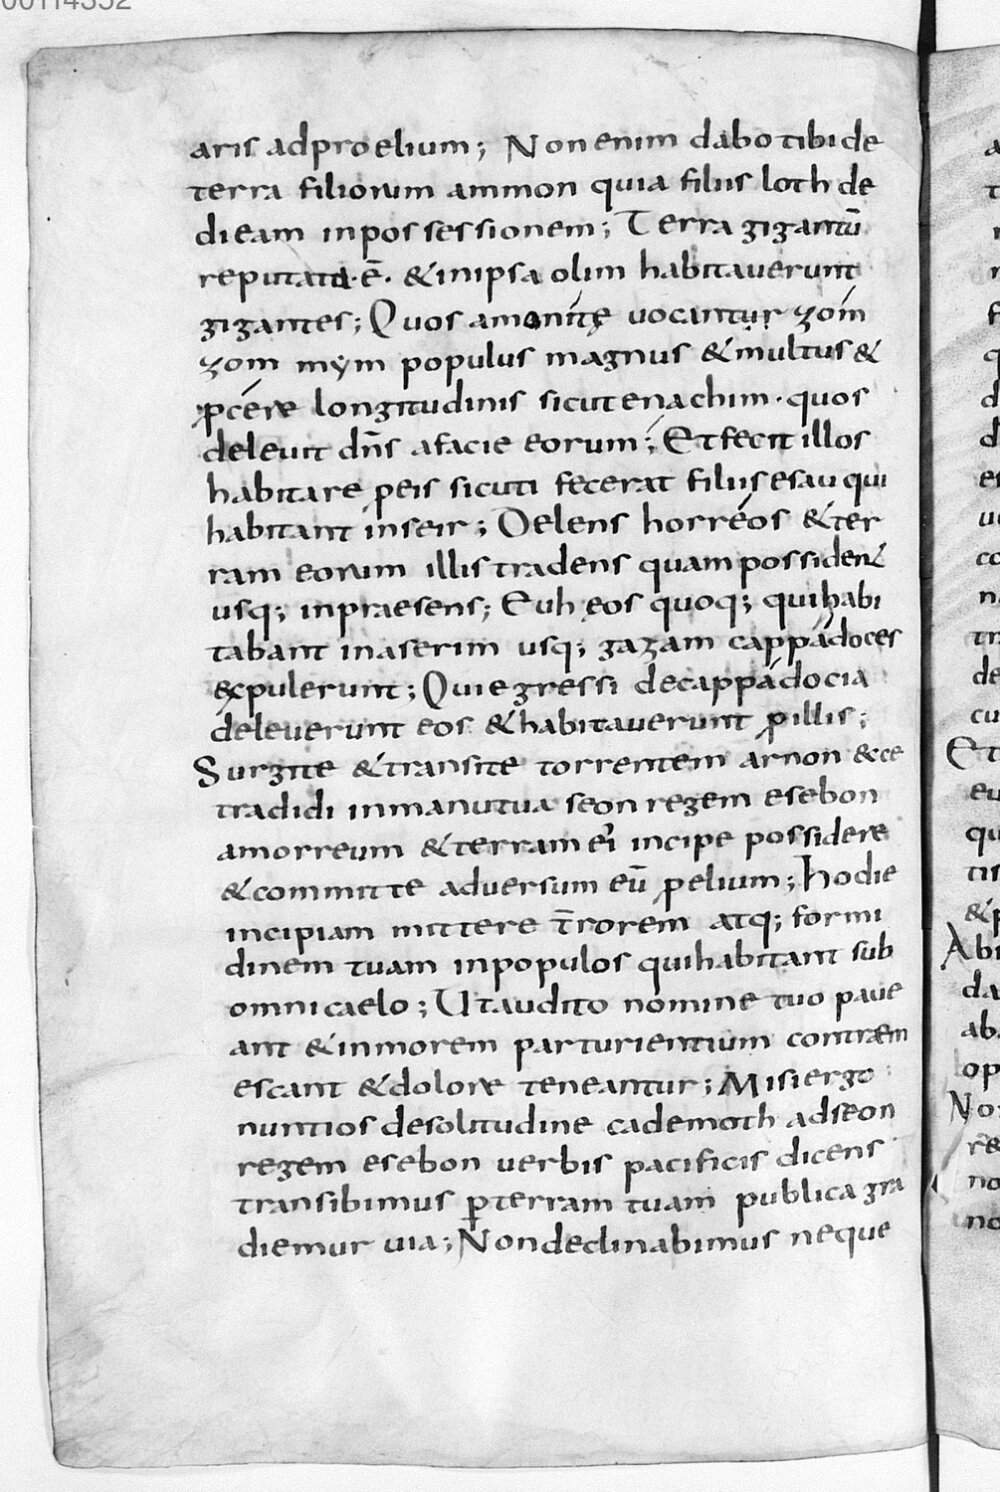 00114352
aris adproelium; Non enim dabo tibi de
terra filiorum ammon quia filiis loth de
di eam in possessionem; Terra gigantū
reputata·ē· & in ipsa olim habitaverunt
gigantes; Quos amonitę vocantur zóin
zom mym populus magnus & multus &
ꝓcére longitudinis sicut enachim· quos
delevit dn̄s a facie eorum; Et fecit illos
habitare ꝓ eis sicuti fecerat filiis esau qui
habitant in seir; Delens horréos & ter
ram eorum illis tradens quam possident
usq; in praesens; Euhęos quoq; qui habi
tabant in aserim usq; gazam cappádoces
expulerunt; Qui egressi de cappádocia
deleverunt eos & habitaverunt ꝓ illis;
Surgite & transite torrentem arnon &cce
tradidi in manu tua seon regem esebon
amorreum & terram ei incipe possidere
& committe adversum eū ꝓelium; hodie
incipiam mittere t̄rorem atq; formi
dinem tuam in populos qui habitant sub
omni caelo; Ut audito nomine tuo pave
ant & in morem parturientium contræm
escant & dolore teneantur; Misi ergo
nuntios de solitudine cademoth ad seon
regem esebon verbis pacificis dicens
transibimus ꝑ terram tuam publica gra
diemur via; Non declinabimus neque